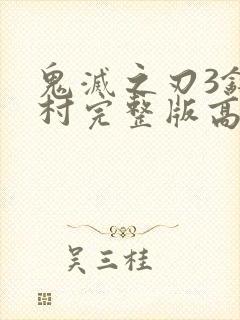 鬼滅之刃3
村完整版高
吴三桂